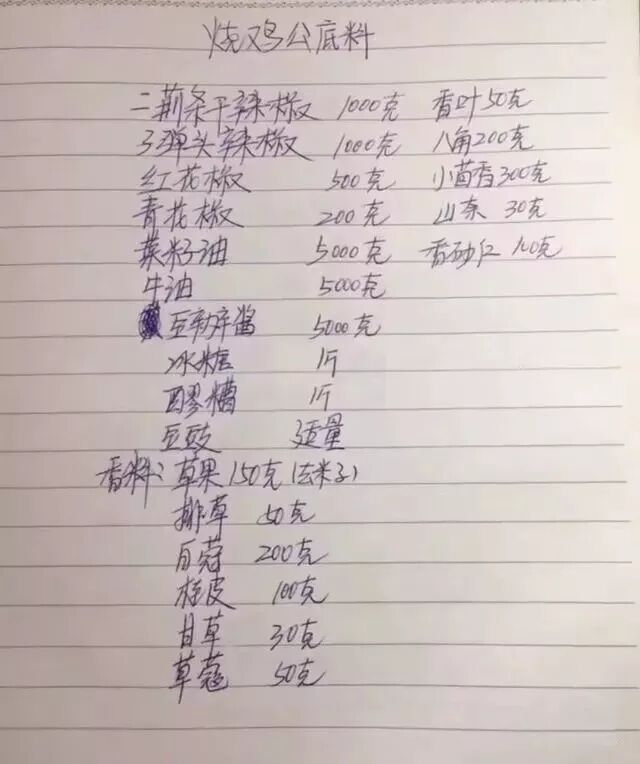 烧鸡公底料
二荆条干辣椒 1000克 香叶50克
子弹头辣椒 1000克 八角200克
红花椒 500克 小茴香300克
青花椒 200克 山奈 30克
菜籽油 5000克 香砂仁 100克
牛油 5000克
豆瓣酱 5000克
冰糖 1斤
醪糟 1斤
豆豉 适量
香料：草果150克（去米子）
排草 50克
白蔻 200克
桂皮 100克
甘草 30克
草蔻 50克